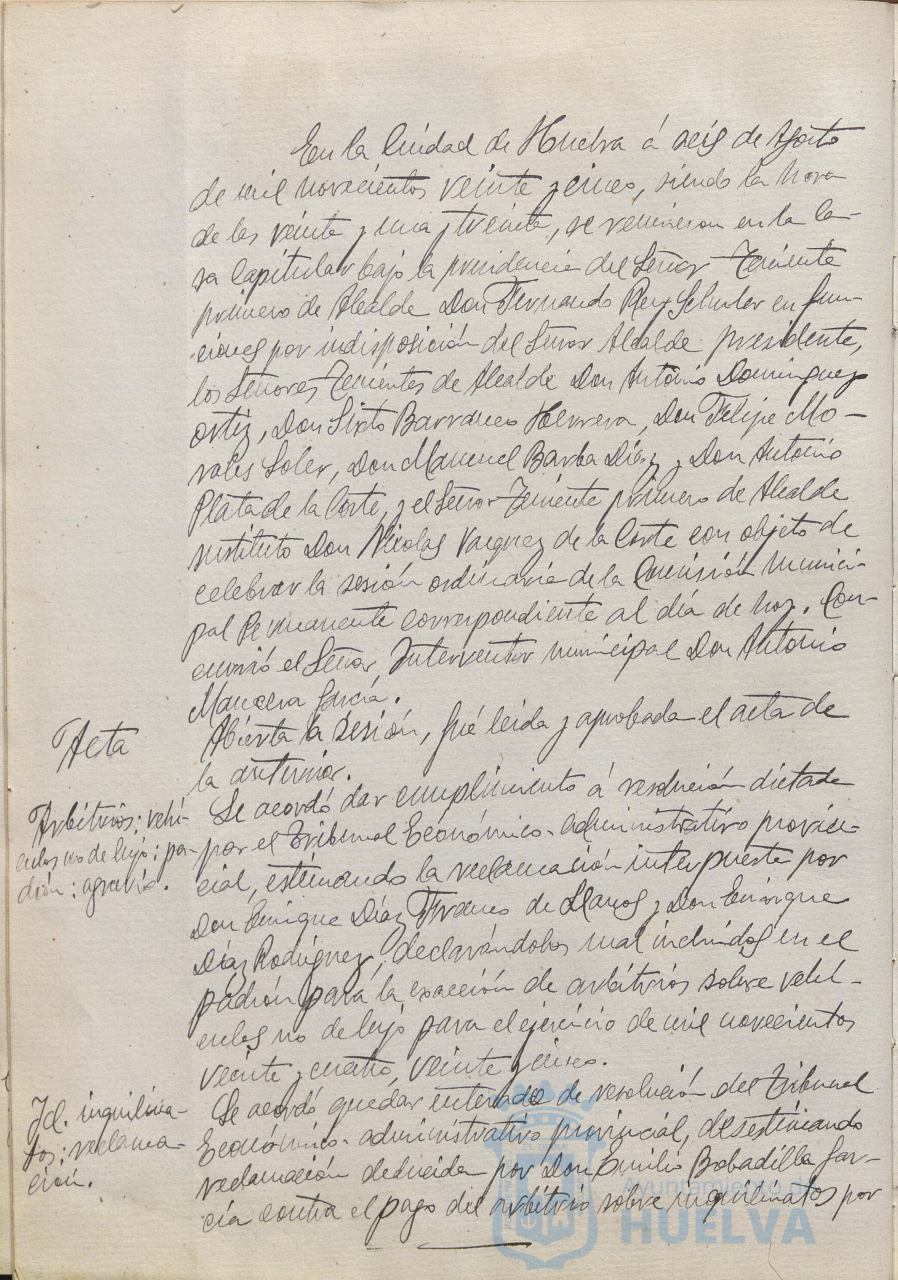 En la Ciudad de Huelva á seis de Agosto
de mil novecientos veinte y cinco, siendo la hora
de las veinte y una y treinta, se reunieron en la Ca-
sa Capitular bajo la presidencia del Señor Teniente
primero de Alcalde Don Fernando Rey Schuler en fun-
ciones por indisposición del Señor Alcalde presidente,
los Señores Tenientes de Alcalde Don Antonio Dominguez
Ortiz, Don Sixto Barranco Herrera, Don Felipe Mo-
rales Soler, Don Manuel Barba Díaz y Don Antonio
Plata de la Corte, y el Señor Teniente primero de Alcalde
sustituto Don Nicolas Vazquez de la Corte con objeto de
celebrar la sesión ordinaria de la Comisión Munici-
pal Permanente correspondiente al día de hoy. Con-
currió el Señor Interventor municipal Don Antonio
Mancera García.
Acta
Abierta la sesión, fué leida y aprobada el acta de
la anterior.
Arbitrios; vehi-
culos no de lujo; pa-
drón; agravio.
Se acordó dar cumplimiento á resolución dictada
por el Tribunal Económico-administrativo provin-
cial, estimando la reclamación interpuesta por
Don Enrique Díaz Franco de Llanos y Don Enrique
Díaz Rodríguez, declarándolos mal incluidos en el
padrón para la exacción de arbitrios sobre vehi-
culos no de lujo para el ejercicio de mil novecientos
veinte y cuatro, veinte y cinco.
Id. inquilina-
tos; reclama-
ción.
Se acordó quedar enterado de resolución del Tribunal
Económico-administrativo provincial, desestimando
reclamación deducida por Don Emilio Bobadilla Gar-
cía contra el pago del arbitrio sobre inquilinatos por
Ayuntamiento de
HUELVA